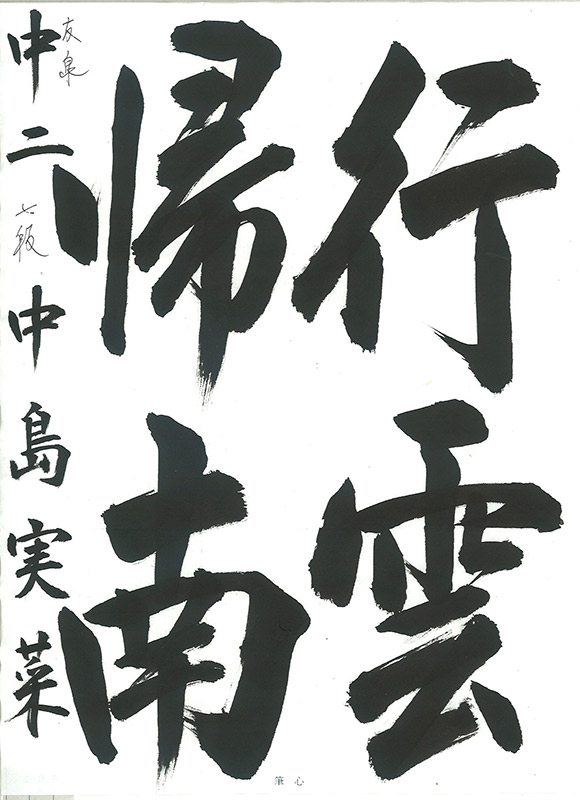 行雲
帰南
中二 中島実菜
友泉
七級
心筆